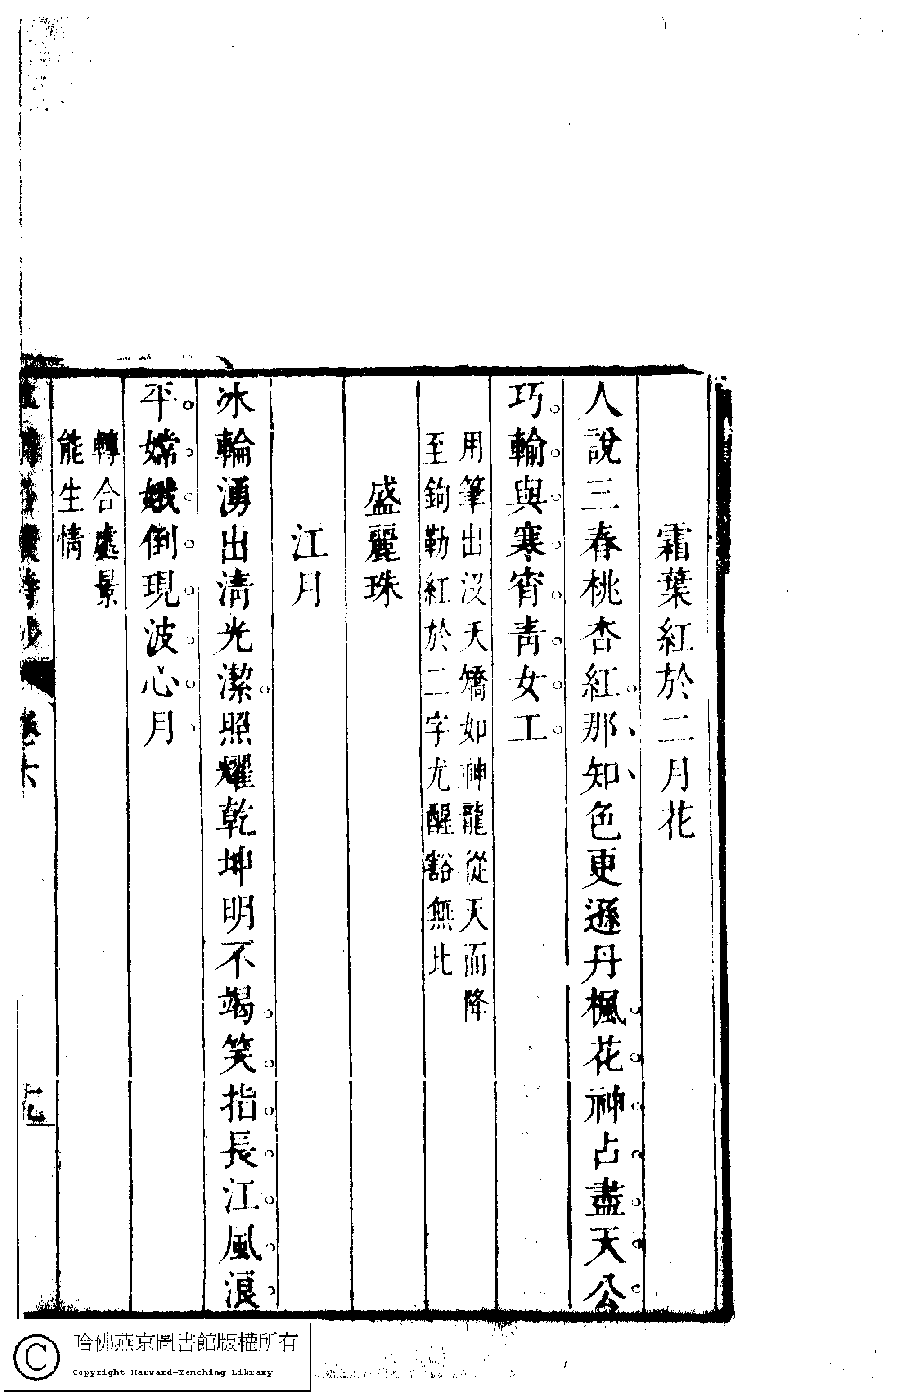 霜葉紅於二月花
人說三春桃杏紅那知色更遜丹楓花神占盡天公
巧輸與寒宵青女工
用筆出沒天矯如神龍從天而降
至鉤勒紅於二字尤醒豁無比
盛麗珠
江月
冰輪湧出清光潔照耀乾坤明不竭笑指長江風浪
平嫦娥倒現波心月
轉合處景
能生情
卷六
哈佛燕京圖書館版權所有
Copyright Harvard-Yenching Library